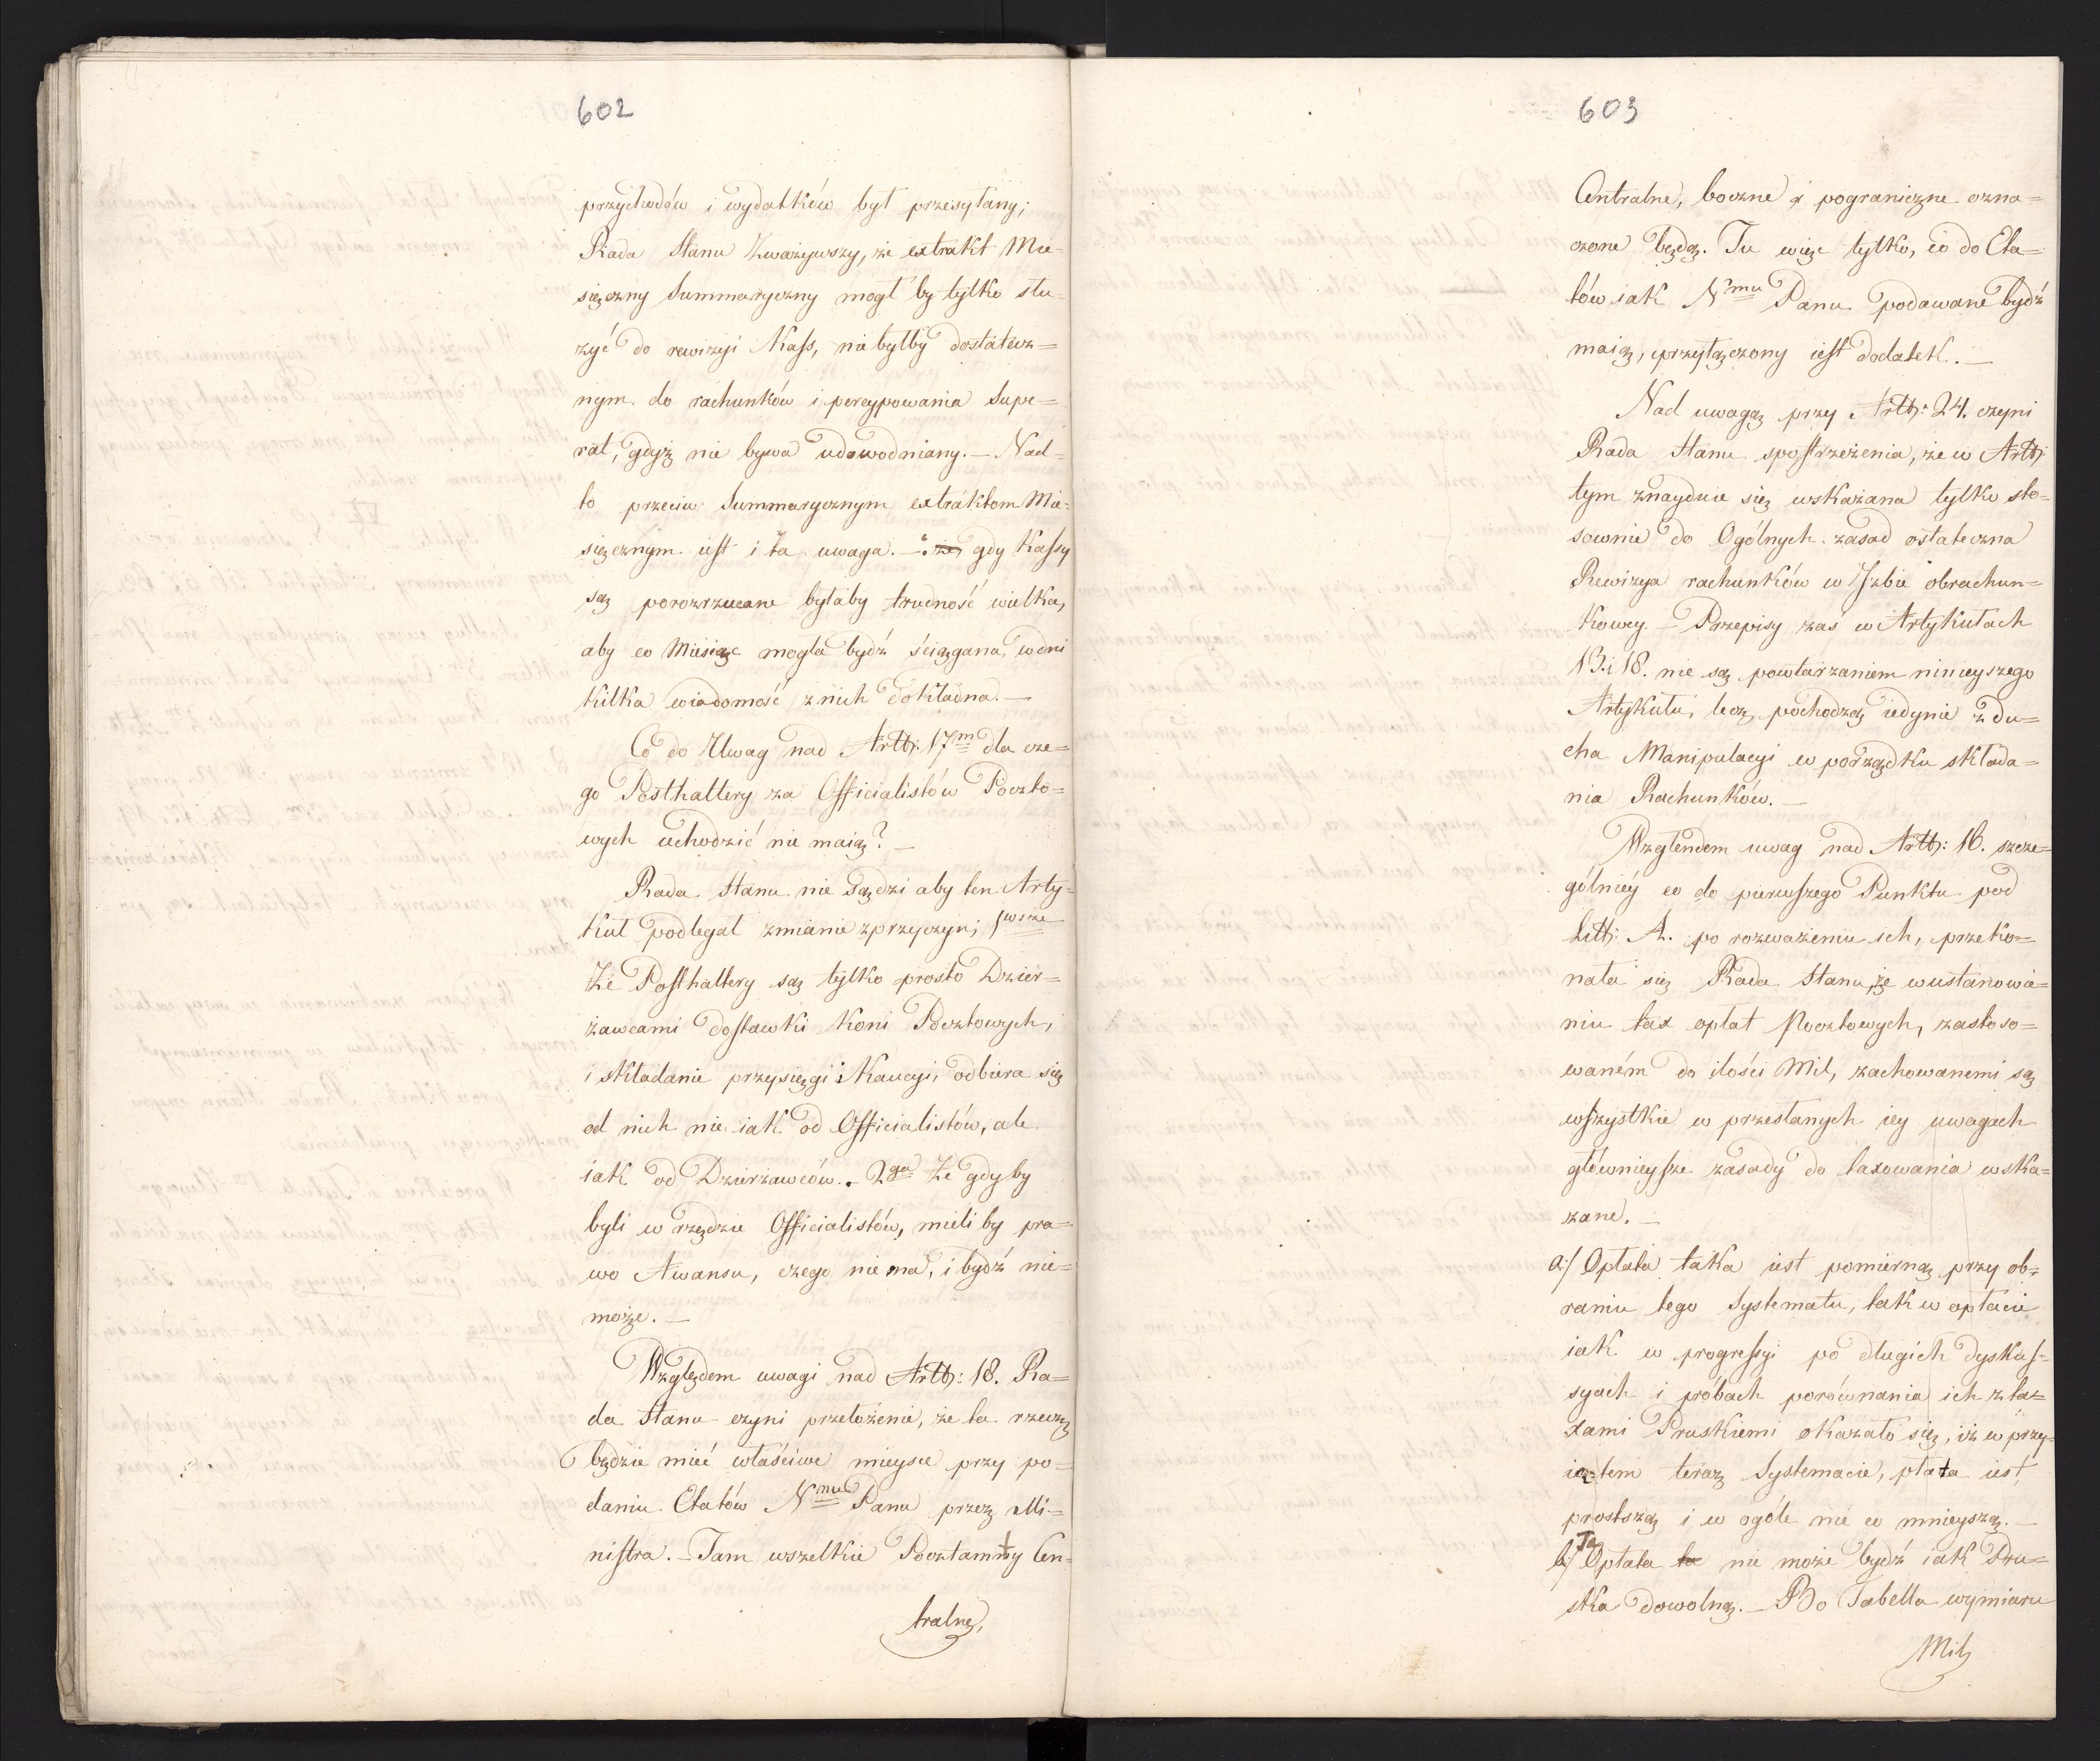 602
przychodów i wydatków był przesyłany;
Rada Stanu Zważywszy, że extrakt Mie-
sięczny Summaryczny mogł by tylko słu-
żyć do rewizyi Kass, nie byłby dostatecz=
nym do rachunków i percypowania Supe=
rat, gdyż nie bywa udowodniany. — Nad=
to przeciw Summarycznym extraktom Mie-
sięcznym iest i ta uwaga. — że gdy Kassy
są porozrzucane byłaby trudność wielka,
aby co Miesiąc mogła bydź ściągana w dni
kilka wiadomość z nich dokładna. —
Co do Uwag nad Artt: 17m dla cze=
go Posthaltery za Officialistów Poczto=
wych uchodzić nie maią? —
Rada Stanu nie sądzi aby ten Arty-
kuł podlegał zmianie z przyczyn; 1wsze
Że Posthaltery są tylko prosto Dzier=
żawcami dostawki Koni Pocztowych,
i składanie przysięgi i Kaucyi, odbiera się
od nich nie iak od Officialistów, ale
iak od Dzierżawców. - 2gie Że gdyby
byli w rzędzie Officialistów, mieli by pra=
wo Awansu, czego nie ma, i bydź nie=
może. —
Względem uwagi nad Artt: 18. Ra=
da Stanu czyni przełożenie, że ta rzecz
będzie mieć właściwe mieysce przy po=
daniu Etatów Nmu Panu przez Mi=
nistra. — Tam wszelkie Pocztamty Cen-
tralne,
603
Centralne, boczne i pograniczne ozna=
czone będą. Tu więc tylko, co do Eta=
tów iak Nmu Panu podawane bydź
maią, przyłączony iest dodatek. —
Nad uwagą przy Artt: 24. czyni
Rada Stanu spostrzeżenia, że w Artt:
tym znayduie się wskazana tylko sto=
sownie do Ogólnych zasad ostateczna
Rewizya rachunków w Izbie obrachun=
kowey — Przepisy zaś w Artykułach
13. i 18. nie są powtarzaniem ninieyszego
Artykułu, lecz pochodzą iedynie z du=
cha Manipulacyi w porządku składa=
nia Rachunków. —
Wzglendem uwag nad Artt: 16. szcze=
gólniéy co do pierwszego Punktu pod
Litt: A. po rozważeniu ich, przeko=
nała się Rada Stanu, że w ustanowie=
niu tax opłat Pocztowych, zastoso=
waném do ilości Mil, zachowanemi są
wszystkie w przesłanych iey uwagach
głównieysze zasady do taxowania wska=
zane. —
a:/ Opłata taka iest pomierną przy ob=
raniu tego Systematu, tak w opłacie
iak w progressyi po długich dyskus=
syach i próbach porównania ich z ta=
xami Pruskiemi okazało się, iż w przy=
iętem teraz Systemacie, płata iest
prostszą i w ogóle nie co mnieyszą. —
b:/ Ta Opłata ta nie może bydź iak Pru=
ska dowolną. — Bo Tabella wymiaru
Mil